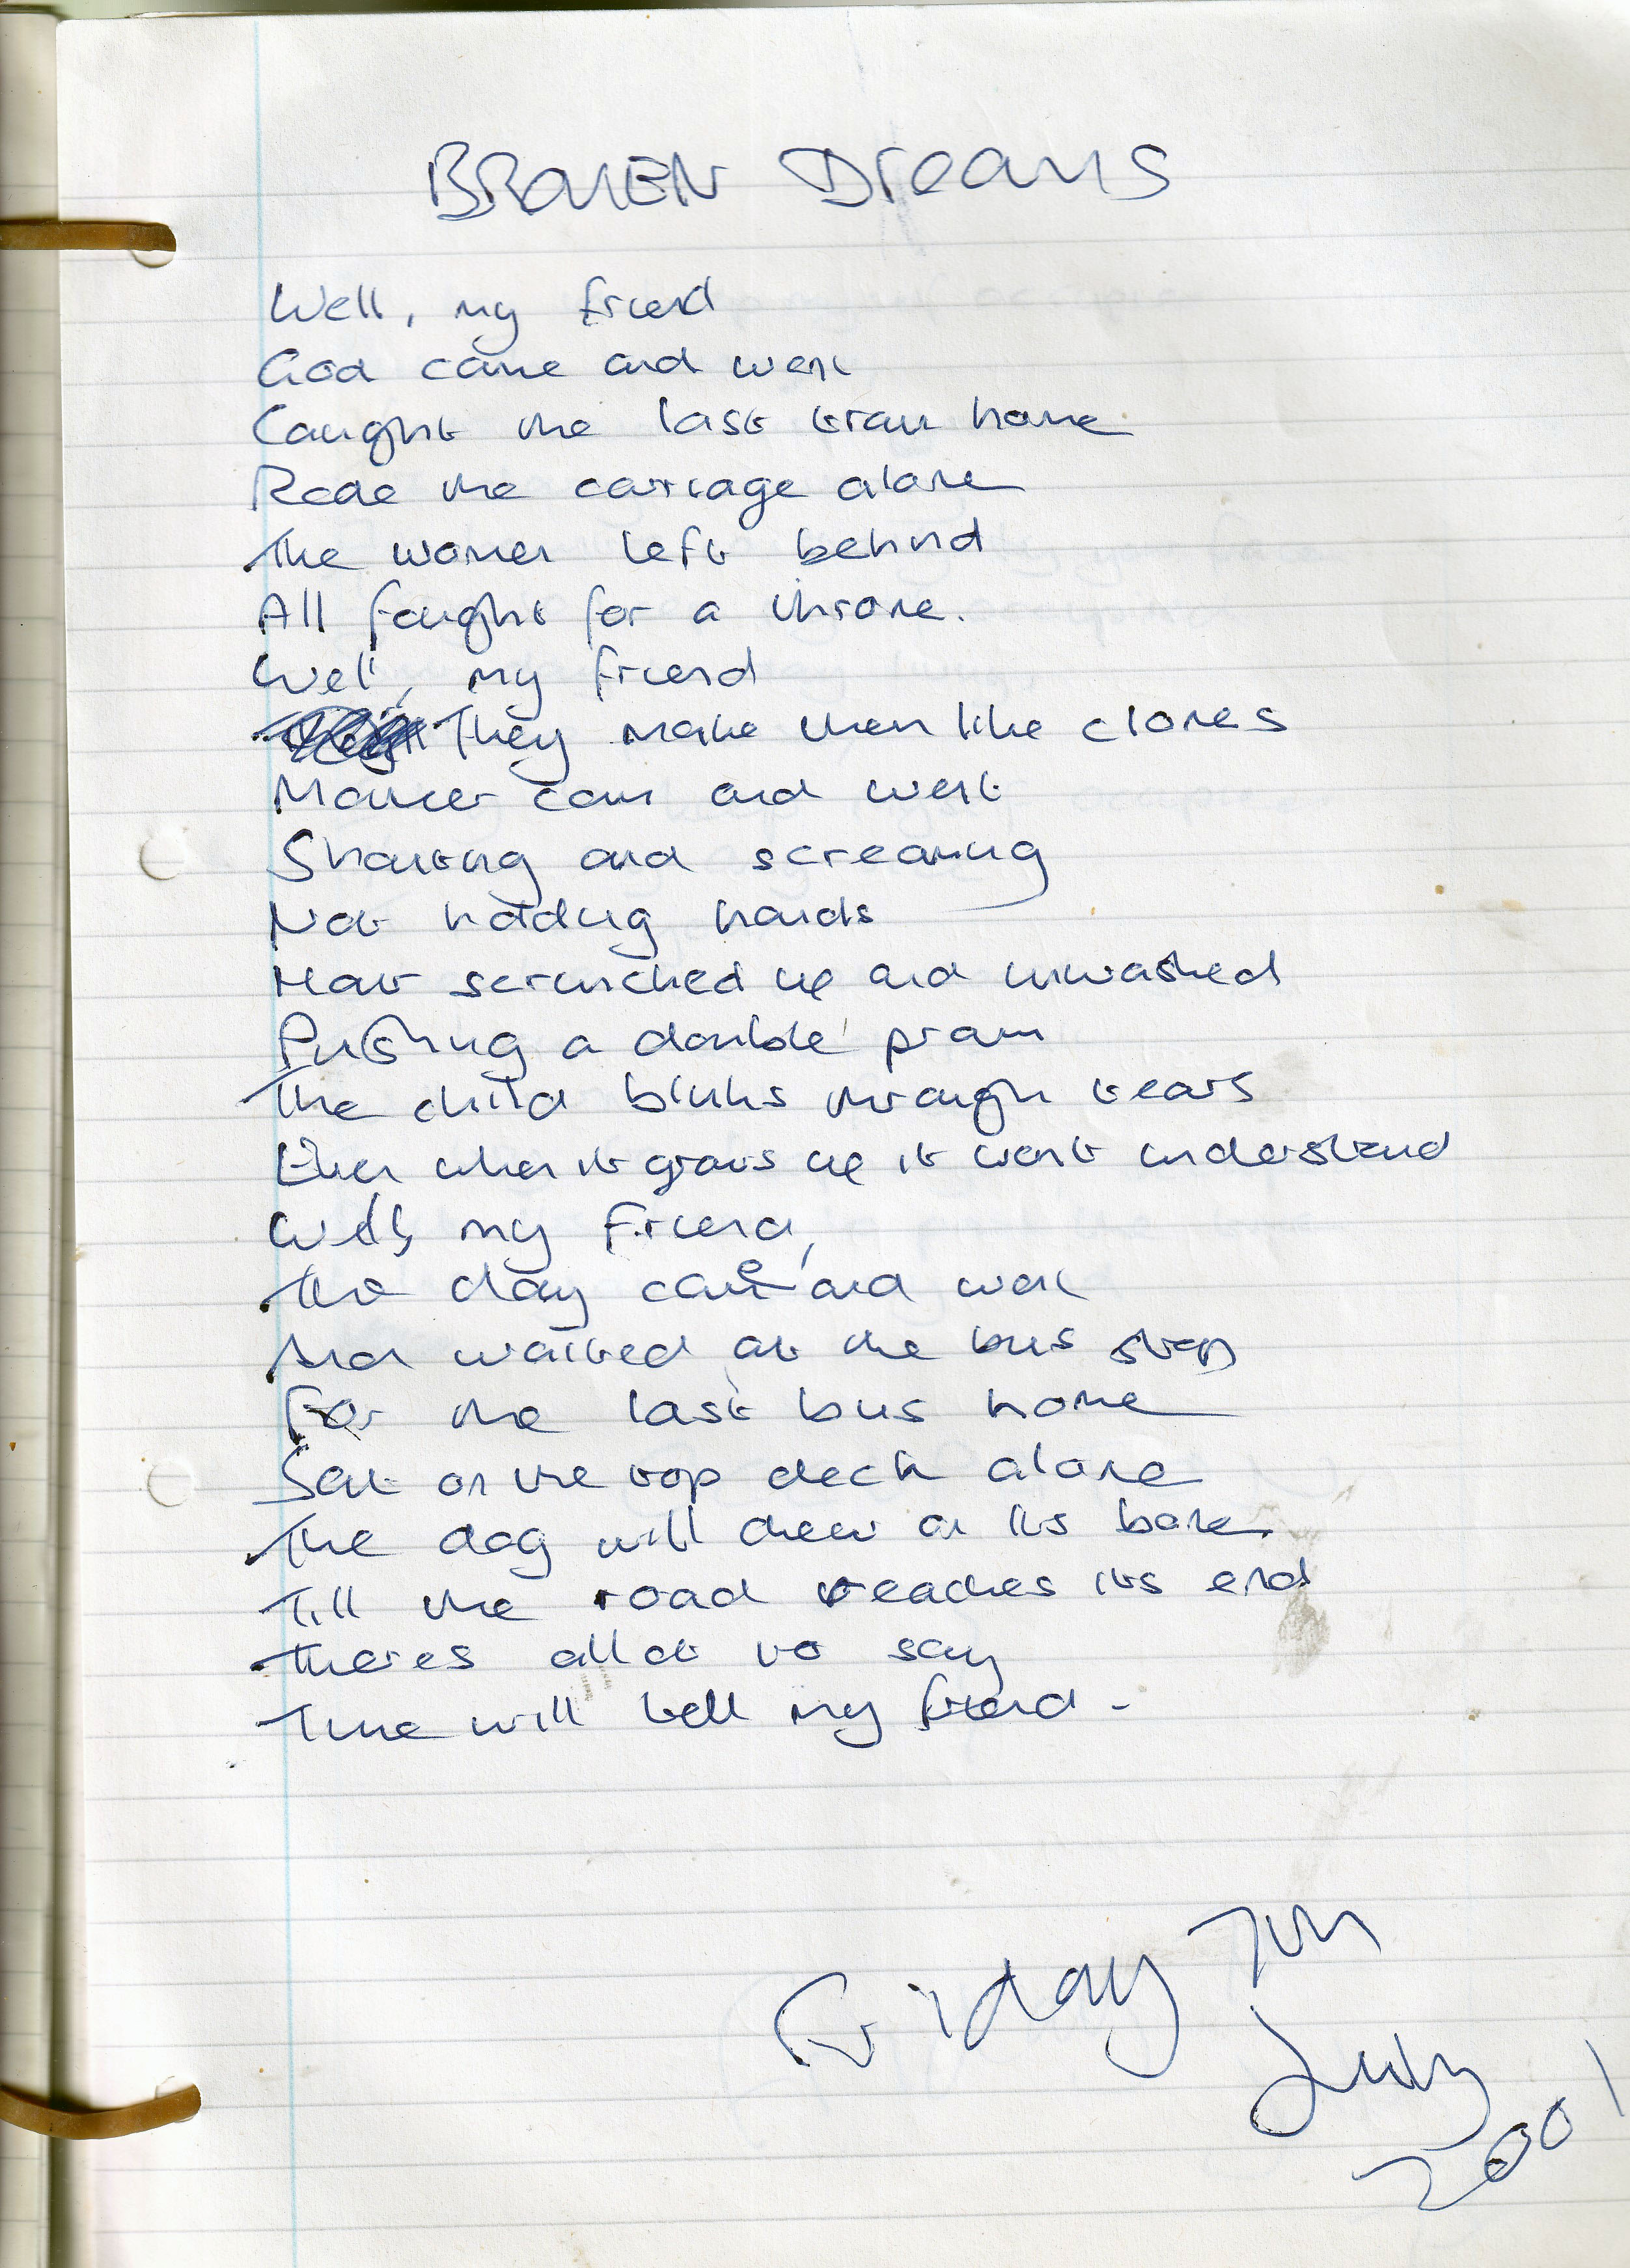 BROKEN Dreams
Well, my friend
God came and went
Caught the last train home
Rode the carriage alone
The women left behind
All fought for a throne.
Well, my friend
They make them like clones
Mother came and went
Shouting and screaming
Not holding hands
Hair scrunched up and unwashed
Pushing a double pram
The child blinks through tears
Even when it grows up it wont understand
Well, my friend,
The day came and went
And waited at the bus stop
For the last bus home
Sat on the top deck alone
The dog will chew on its bone.
Till the road reaches its end
Theres allot to say
Time will tell my friend -
Friday
July
2001